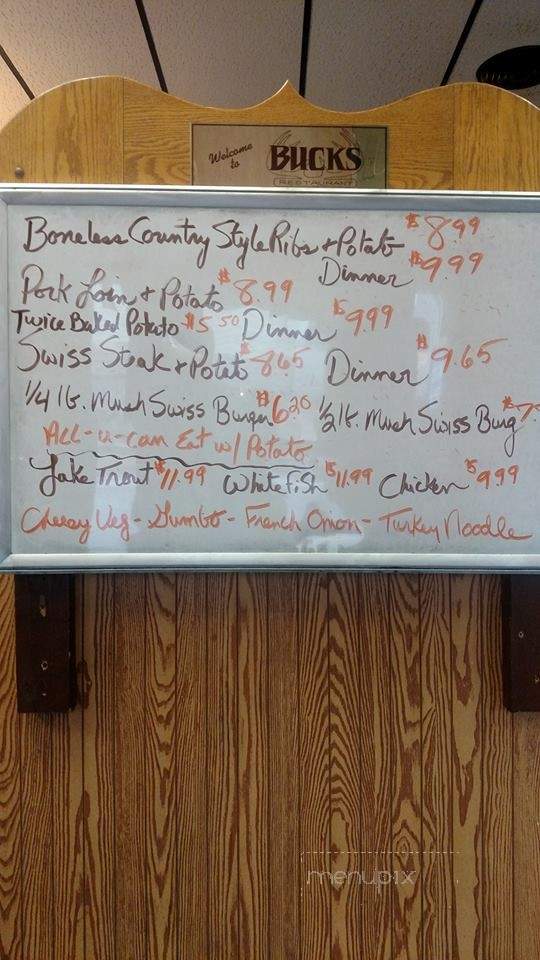 Welcome to
BUCKS
RESTAURANT
Boneless Country Style Ribs + Potato $8.99
Dinner $9.99
Pork Loin + Potato $8.99
Twice Baked Potato $5.50 Dinner $9.99
Swiss Steak + Potato $8.65 Dinner $9.65
1/4 lb. Mush Swiss Burger $6.20 1/2 lb. Mush Swiss Burg $7
All-u-can Eat w/ Potato
Lake Trout $11.99 Whitefish $11.99 Chicken $9.99
Cheesy Veg - Gumbo - French Onion - Turkey Noodle
menupix